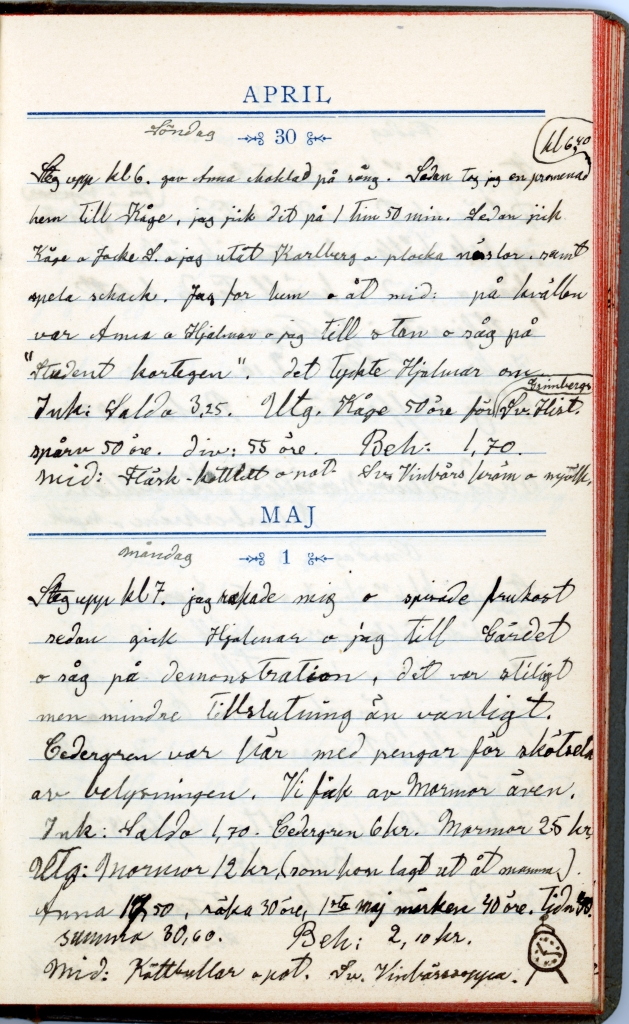 APRIL
Söndag
30
kl 6,40
Steg upp kl 6. gav Anna choklad på säng. Sedan tog jag en promenad
hem till Kåge, jag gick dit på 1 tim 50 min. Sedan gick
Kåge o Jocke S. o jag utåt Karlberg o plocka nässlor. samt
spela schack. Jag for hem o åt mid: på kvällen
var Anna o Hjalmar o jag till stan o såg på
"Student kortegen". det tyckte Hjalmar om
Grimbergs
Ink: Saldo 3,25. Utg. Kåge 50 öre för Sv. Hist.
spårv 50 öre. div: 55 öre. Beh: 1,70.
Mid: Fläsk-kottlett o pot. Sv. Vinbärskräm o mjölk.
MAJ
måndag
1
Steg upp kl 7. jag rakade mig o spisade frukost
sedan gick Hjalmar o jag till Gärdet
o såg på demonstration, det var stiligt
men mindre tillslutning än vanligt.
Cedergren var här med pengar för skötseln
av belysningen. Vi fick av Mormor även.
Ink: Saldo 1,70. Cedergren 6 kr. Mormor 25 kr,
Utg: Mormor 12 kr, (som hon lagt ut åt mamma).
Anna 17,50, raka 30 öre, 1sta maj märken 40 öre. tidn 40.
summa 30,60. Beh: 2,10 kr.
Mid: Köttbullar o pot. Sv. Vinbärssoppa.